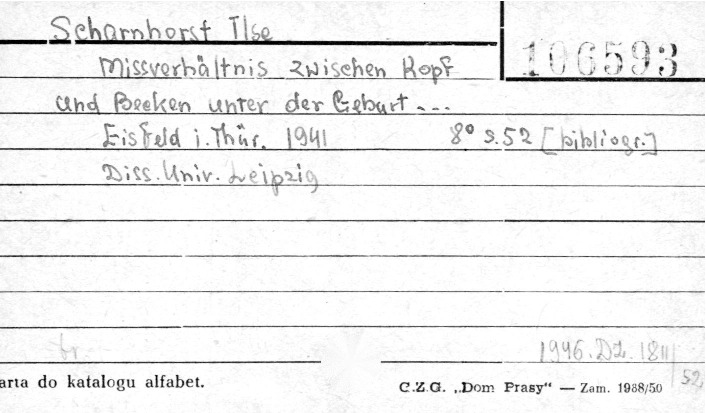 Scharnhorst Ilse
106593
Missverhältnis zwischen Kopf
und Becken unter der Geburt...
Eisfeld i. Thür. 1941 8° s. 52 [bibliogr.]
Diss. Univ. Leipzig
1946. Dz. 1811
52,
arta do katalogu alfabet.
C.Z.G. „Dom Prasy“ — Zam. 1938/50